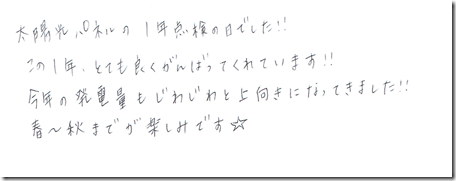 太陽光パネルの1年点検の日でした!!
この1年、とても良くがんばってくれています!!
今年の発電量もじわじわと上向きになってきました!!
春〜秋までが楽しみです☆